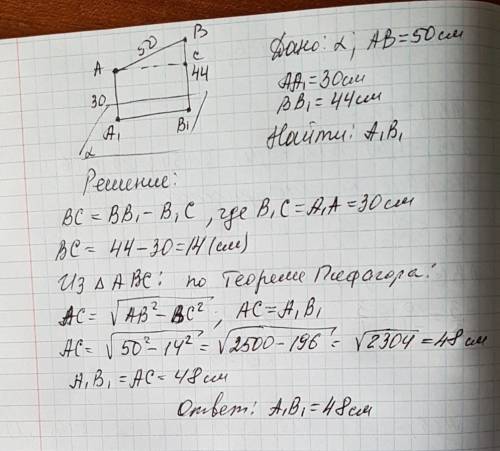 B
50
C
A
44
30
A₁
B₁
α
Дано: α; AB=50см
AA₁=30см
BB₁=44см
Найти: A₁B₁
Решение:
BC=BB₁-B₁C, где B₁C=A₁A=30см
BC=44-30=14(см)
Из △ABC: по Теореме Пифагора:
AC=√AB²-BC², AC=A₁B₁
AC=√50²-14²=√2500-196=√2304=48см
A₁B₁=AC=48см
Ответ: A₁B₁=48см